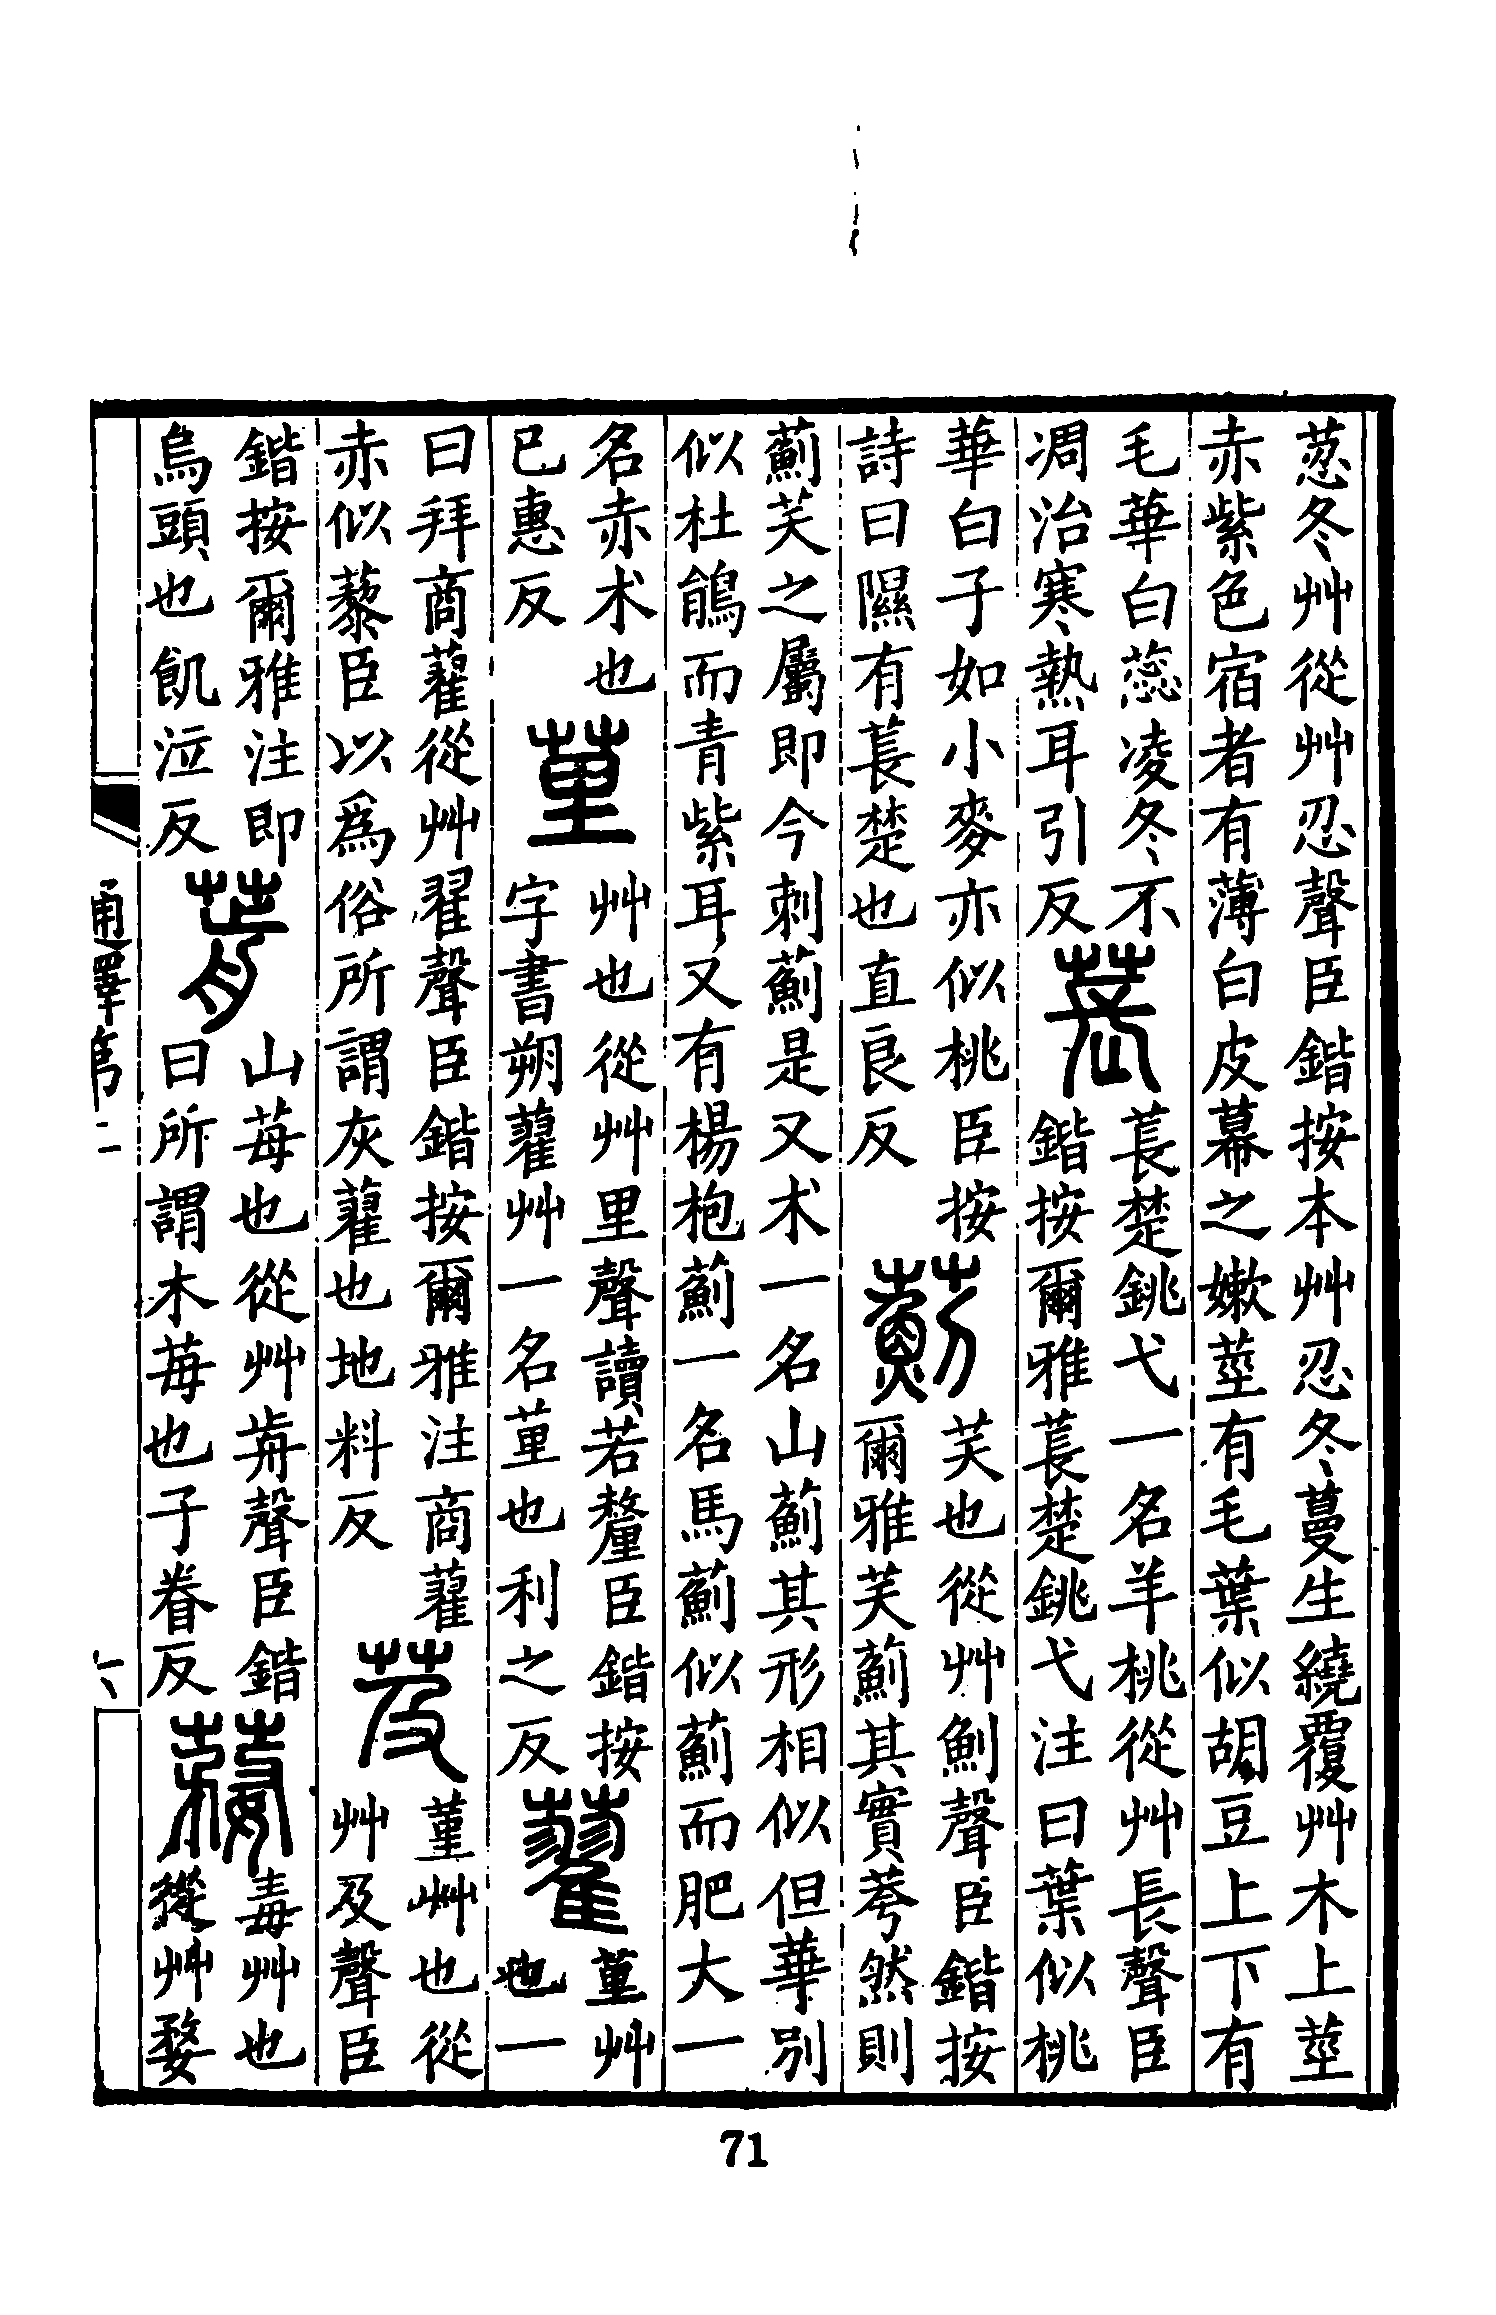 荵冬艸從艸忍聲臣鍇按本艸忍冬蔓生繞覆艸木上莖
赤紫色宿者有薄白皮幕之嫰莖有毛葉似胡豆上下有
毛華白蕊凌冬不
凋治寒熱耳引反
萇
萇楚銚弋一名羊桃從艸長聲臣
鍇按爾雅萇楚銚弋注曰葉似桃
華白子如小麥亦似桃臣按
詩曰隰有萇楚也直良反
薊
芺也從艸魝聲臣鍇按
爾雅芺薊其實荂然則
薊芺之屬即今刺薊是又术一名山薊其形相似但華別
似杜鵑而青紫耳又有楊枹薊一名馬薊似薊而肥大一
名赤术也
巳惠反
荲
艸也從艸里聲讀若釐臣鍇按
字書朔藋艸一名荲也利之反
藋
菫艸
也一
曰拜商藋從艸翟聲臣鍇按爾雅注商藋
赤似藜臣以爲俗所謂灰藋也地料反
芨
菫艸也從
艸及聲臣
鍇按爾雅注即
烏頭也飢泣反
葥
山莓也從艸歬聲臣鍇
曰所謂木莓也子眷反
蓩
毒艸也
從艸婺
通釋第二
六
71